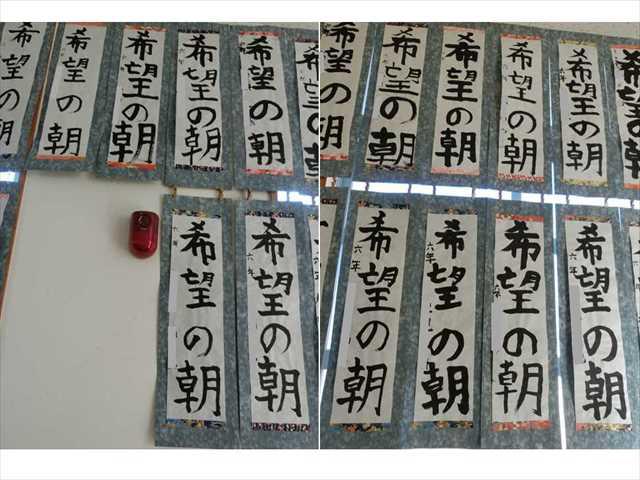 希望の朝
希望の朝
希望の朝
希望の朝
希望の朝
希望の朝
六年
希望の朝
六年
希望の朝
希望の朝
希望の朝
希望の朝
希望の朝
希望の朝
希望の朝
六年
希望の朝
六年
希望の朝
六年
希望の朝
六年
希望の朝